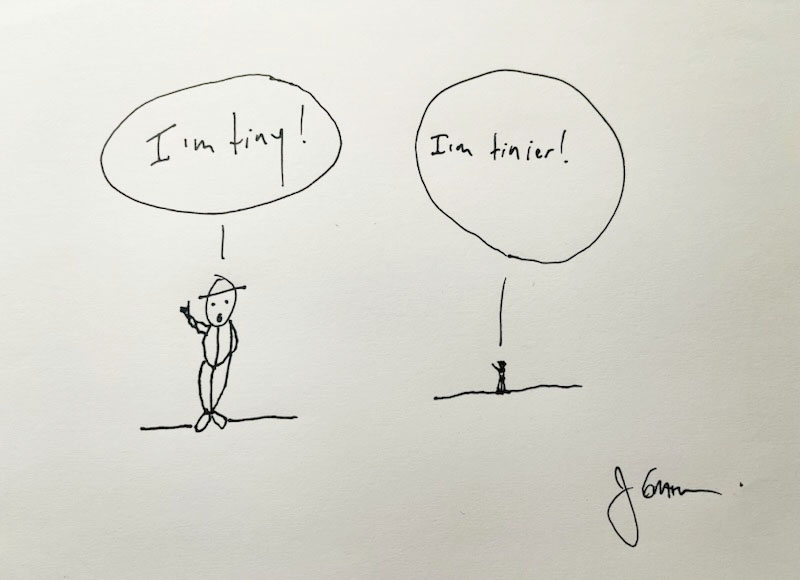 I'm tiny!
I'm tinier!